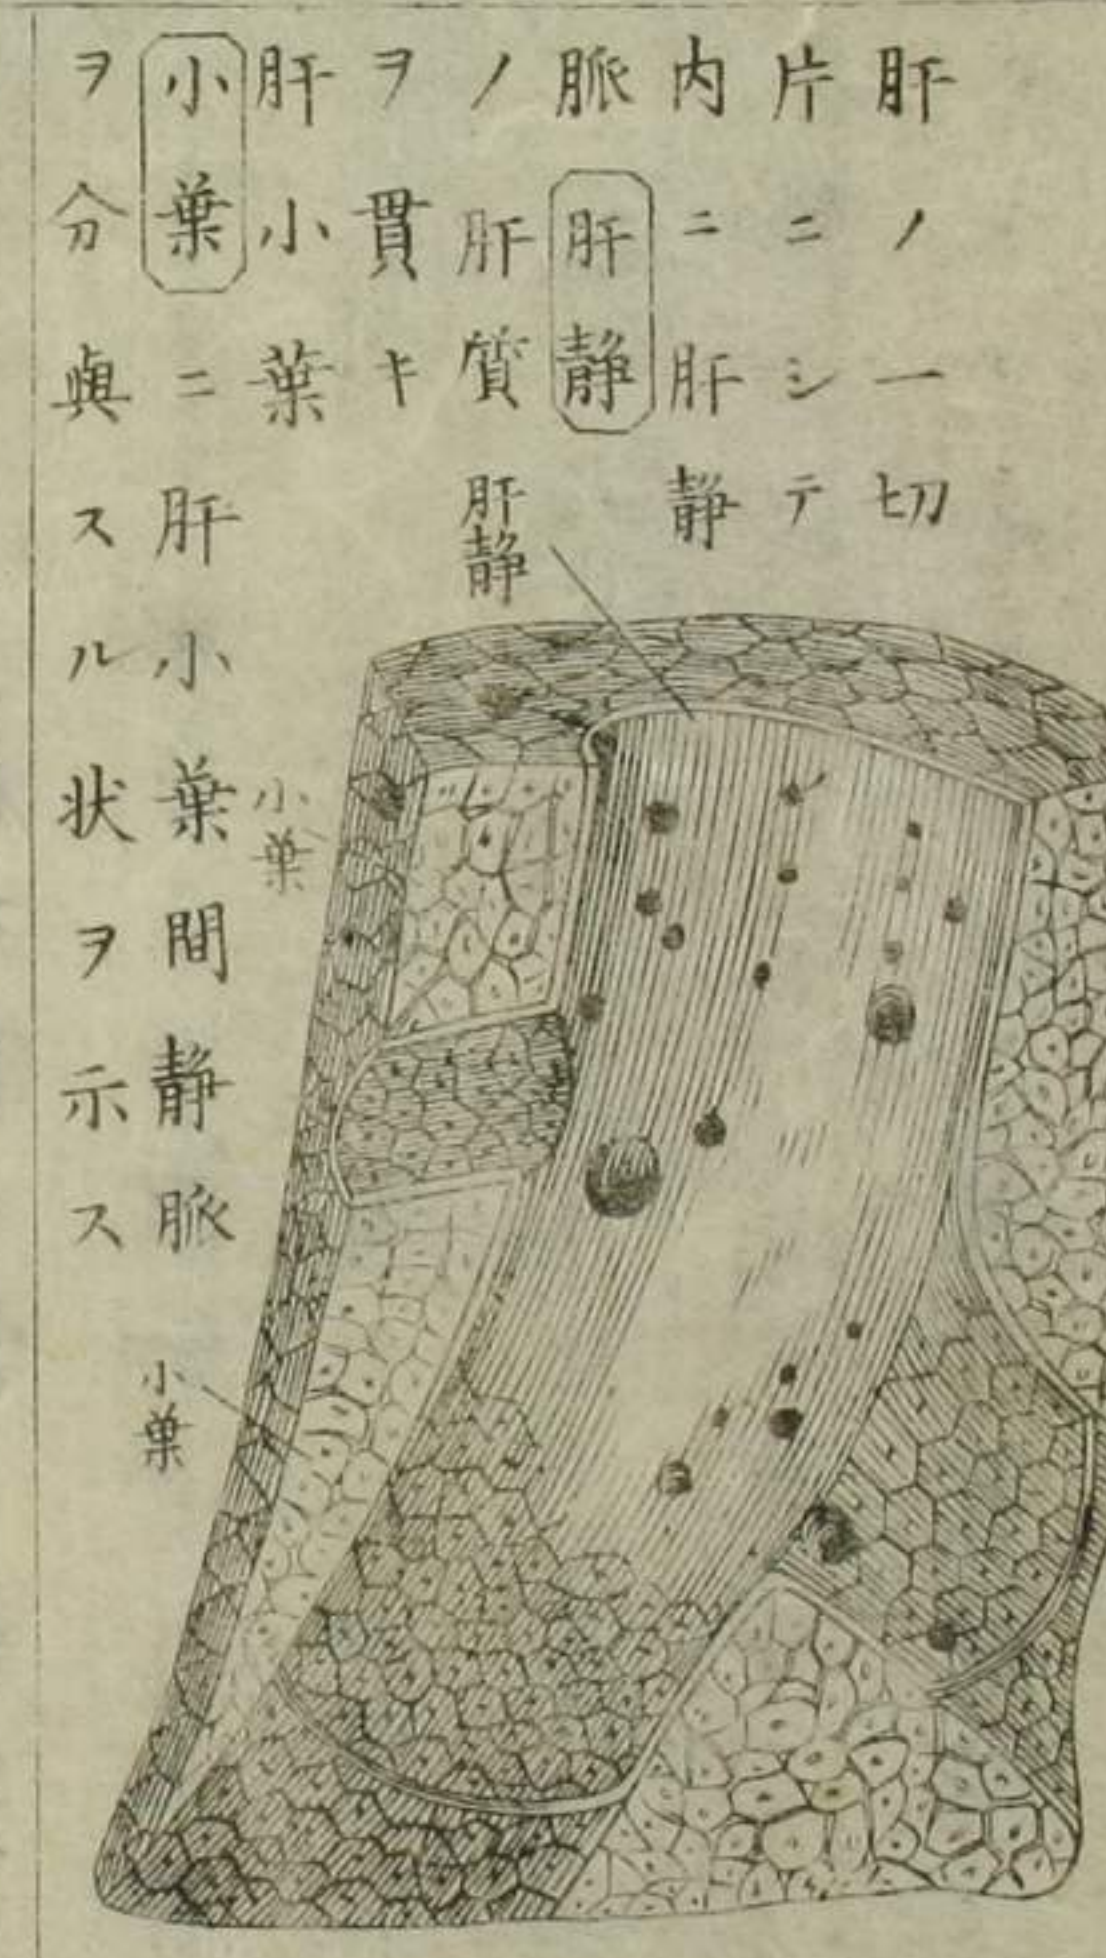 肝ノ一切
片ニシテ
内ニ肝静
脈肝静
ノ肝質
ヲ貫キ
肝小葉
小葉ニ肝小葉間静脈
ヲ分與スル状ヲ示ス
肝静
小葉
小葉